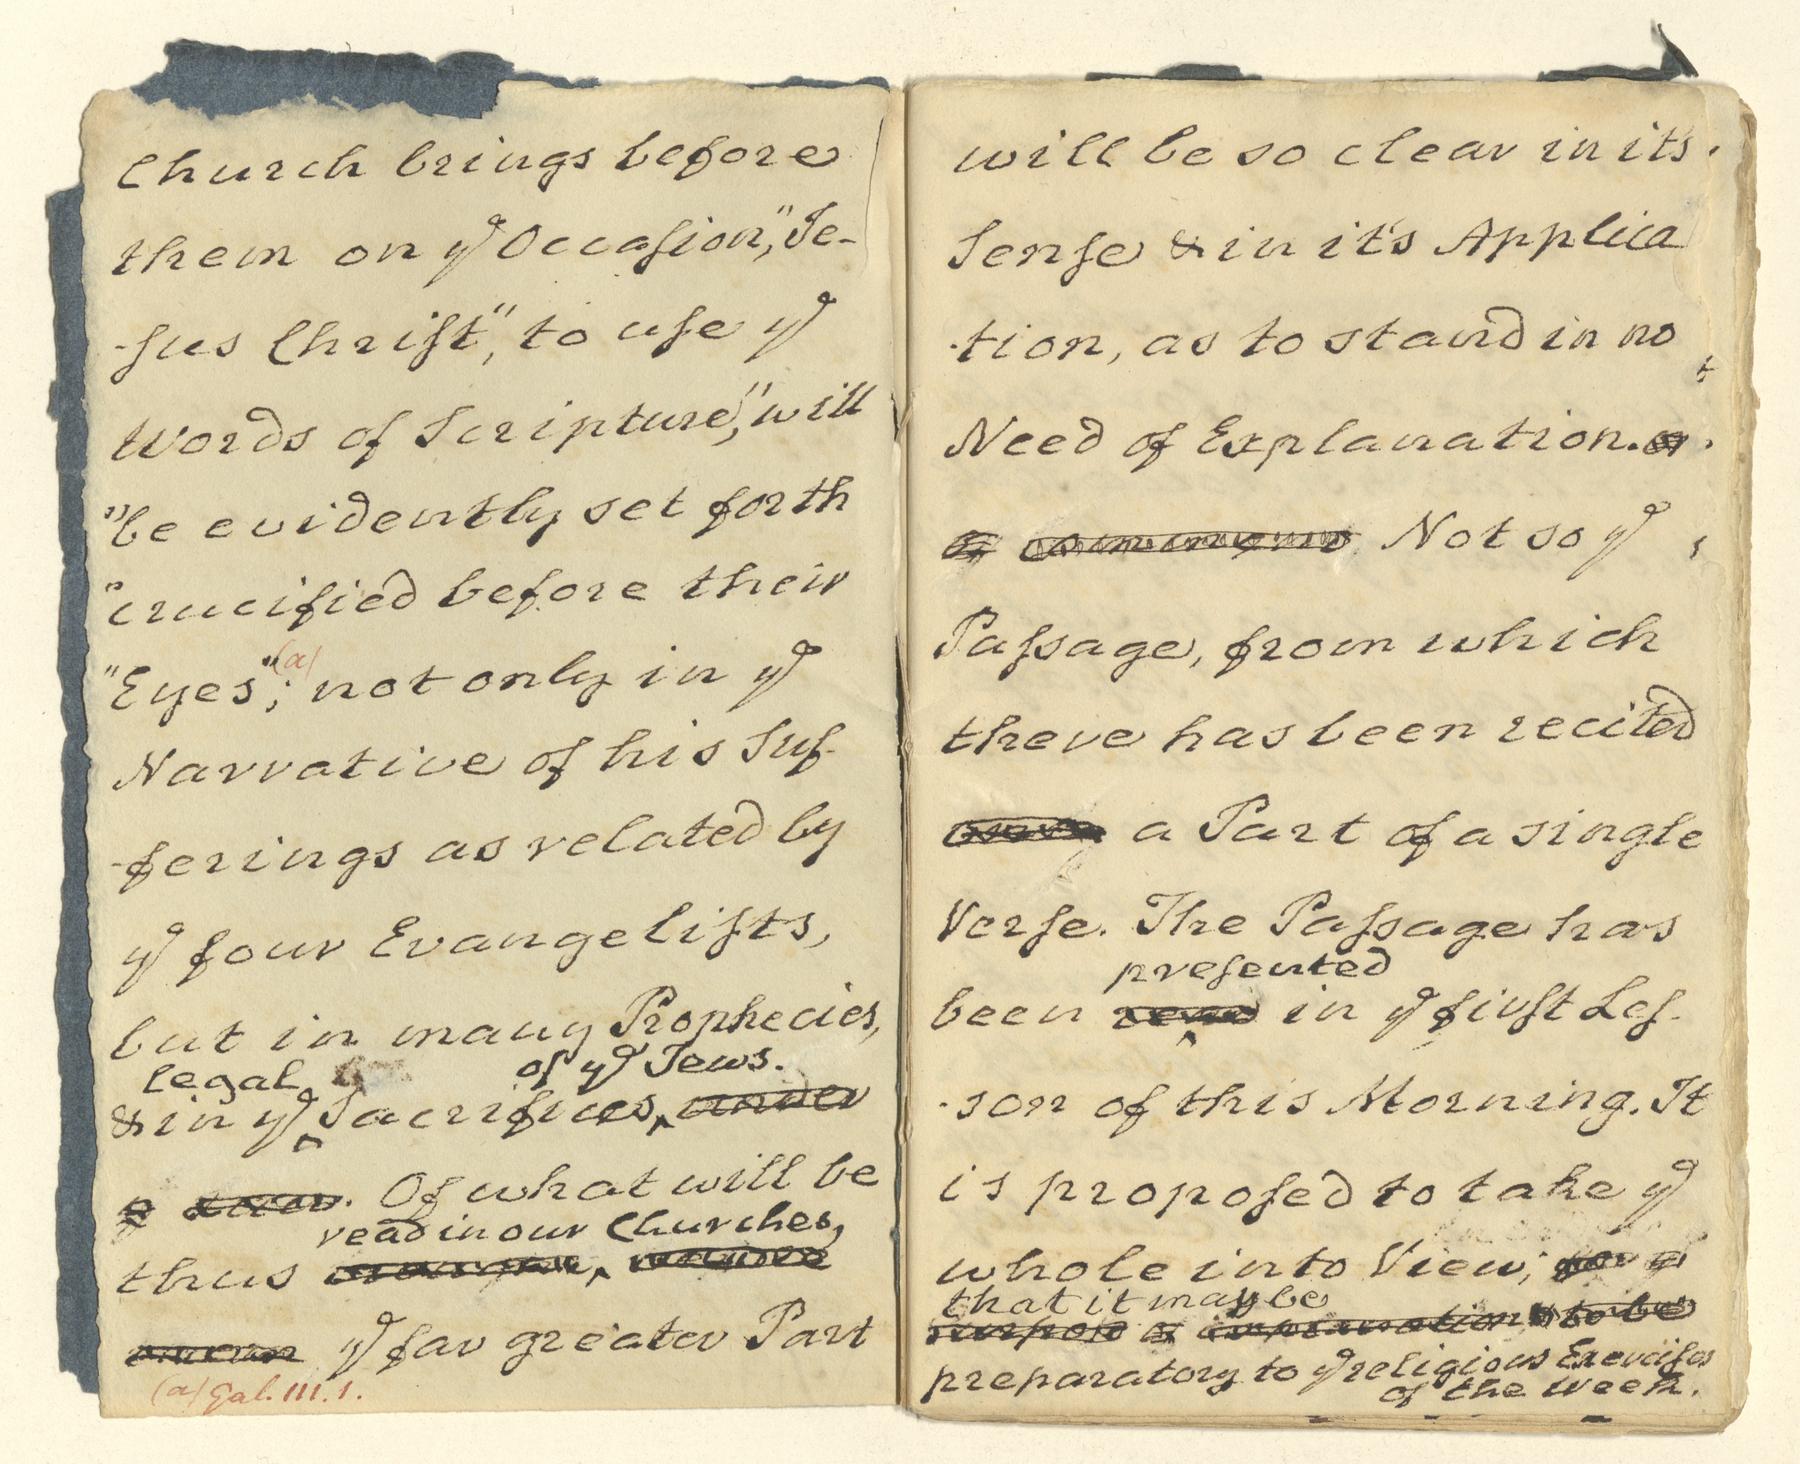 Church brings before
them on yᵉ Occaſion," Je-
-ſus Chriſt," to uſe yᵉ
Words of Scripture," will
"be evidently set forth
"crucified before their
"Eyes";(a) not only in yᵉ
Narrative of his Suf-
-ferings as related by
yᵉ four Evangeliſts,
but in many Prophecies,
legal of yᵉ Jews.
& in yᵉ Sacrifices, under
Of what will be
read in our Churches,
thus
yᵉ far greater Part
(a) Gal. III. 1.
will be so clear in it's
Senſe & in it's Applica
-tion, as to stand in no
Need of Explanation. or
Not so yᵉ
Paſsage, from which
there has been recited
a Part of a single
Verſe. The Paſsage has
preſented
been read in yᵉ firſt Leſ-
-son of this Morning. It
is propoſed to take yᵉ
whole into View; for a
that it may be
purpose to be
preparatory to yᵉ religious Exerciſes
of the Week.